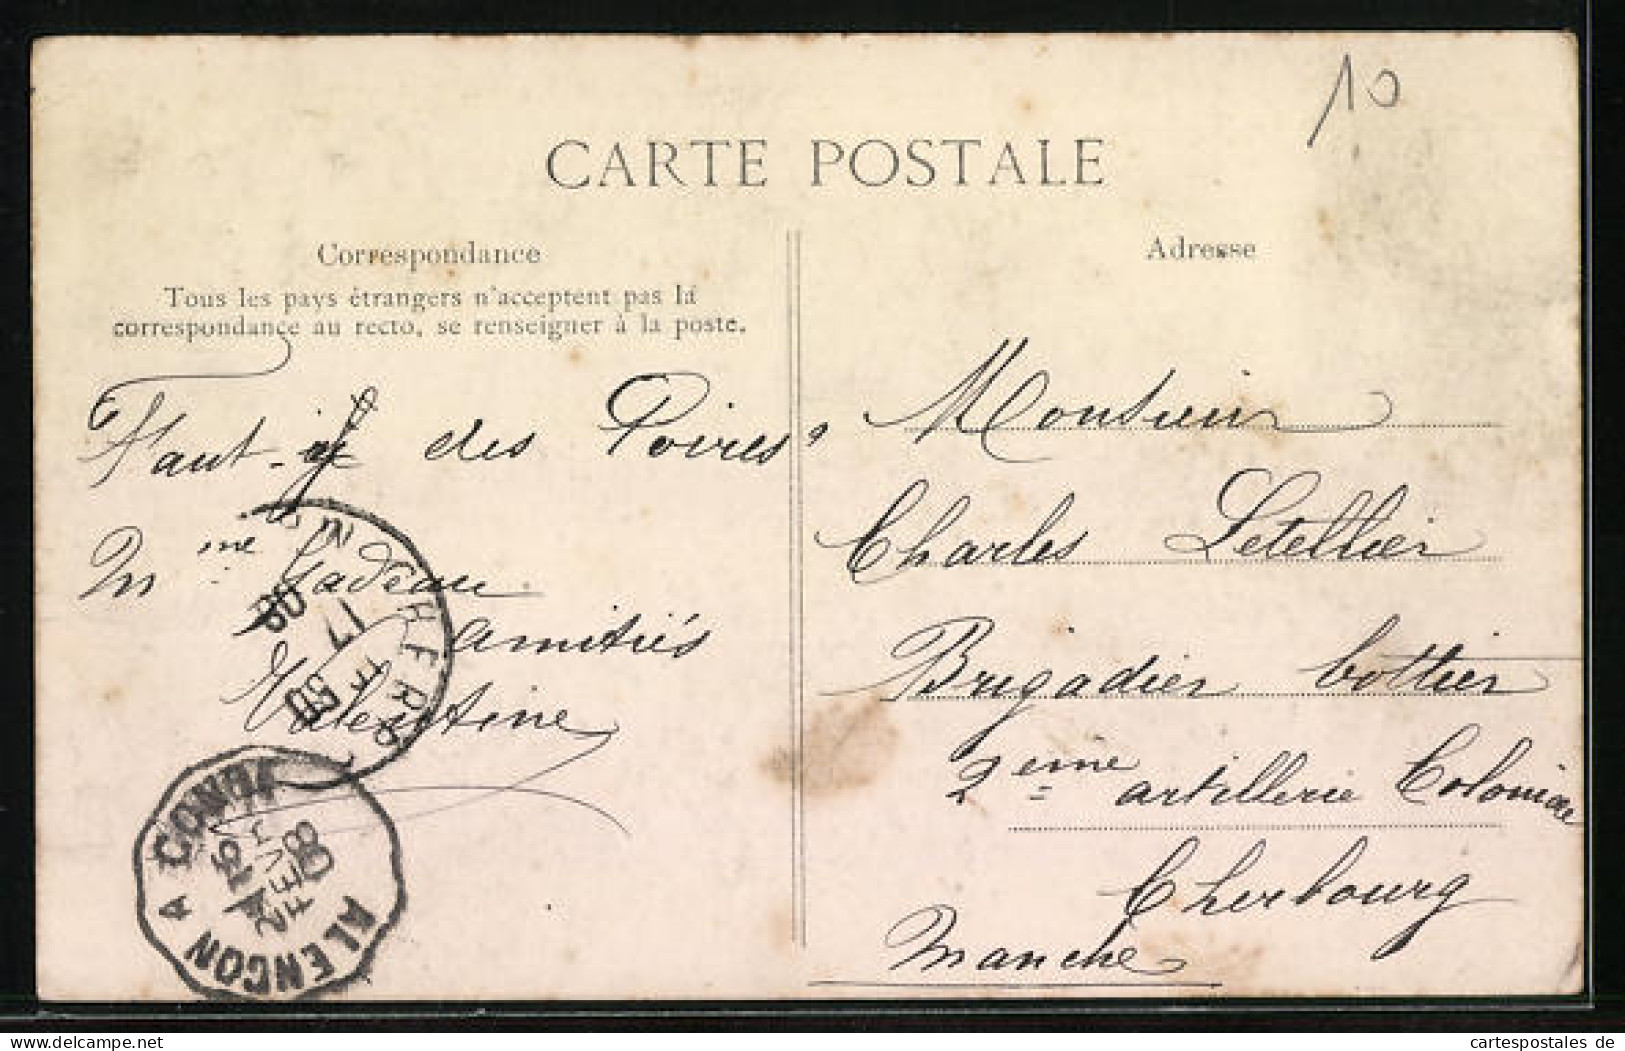 10
CARTE POSTALE
Correspondance
Tous les pays étrangers n'acceptent pas la
correspondance au recto, se renseigner à la poste.
Faut-il des Poires,
Mme Gadeau
amitiés
Valentine
Adresse
Monsieur
Charles Letellier
Brigadier bottier
2eme artillerie Coloniale
Cherbourg
Manche
17
08
ALENÇON A CONDÉ
08
cartespostales de